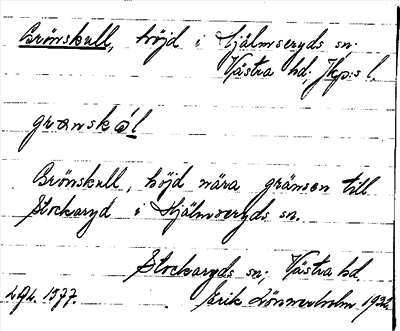 Brönskull, höjd i Hjälmseryds sn.
Västra hd. Jkp:s l.
Brönskull, höjd nära gränsen till
Stockaryd i Hjälmseryds sn.
Stockaryds sn; Västra hd
Erik Lönnerholm